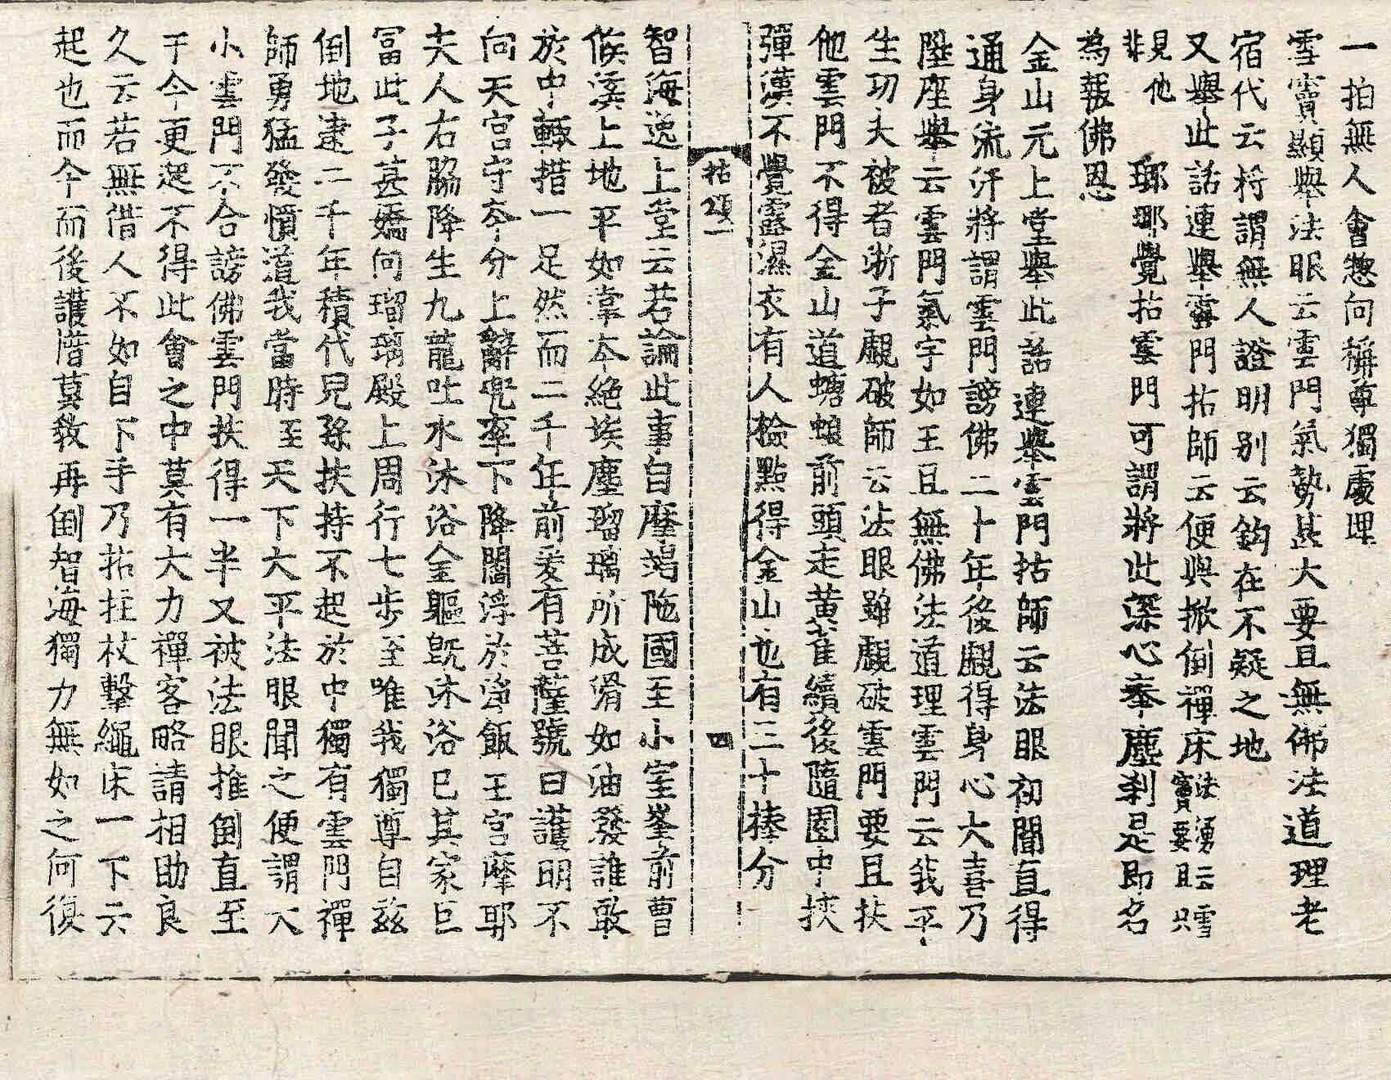 一拍無人會惣向稱尊獨處理
雪竇顯舉法眼云雲門氣勢甚大要且無佛法道理老
宿代云將謂無人證明別云鈎在不疑之地
又舉此話連舉雲門拈師云便與掀倒禪床法湧云雪竇要且只
見他非 瑯瑘覺拈雲門可謂將此深心奉塵刹是即名
為報佛恩
金山元上堂舉此話連舉雲門拈師云法眼初聞直得
通身流汗將謂雲門謗佛二十年後覷得身心大喜乃
陞座舉云雲門氣宇如王且無佛法道理雲門云我平
生功夫被者浙子覷破師云法眼雖覷破雲門要且扶
他雲門不得金山道螗螂前頭走黄雀續後隨園中挾
彈漢不覺露濕衣有人檢點得金山也有三十棒分
拈頌一
四
智海逸上堂云若論此事自摩竭陁國至小室峯前曹
候溪上地平如掌夲絶埃塵瑠璃所成滑如油發誰敢
於中輙措一足然而二千年前爰有菩薩號曰護明不
向天宮守夲分上辭兜率下降閻浮於淨飯王宮摩耶
夫人右脇降生九龍吐水沐浴金軀旣沐浴已其家巨
冨此子甚嬌向瑠璃殿上周行七步至唯我獨尊自玆
倒地逮二千年積代兒孫扶持不起於中獨有雲門禪
師勇猛發憤道我當時至天下大平法眼聞之便謂大
小雲門不合謗佛雲門扶得一半又被法眼推倒直至
于今更起不得此會之中莫有大力禪客略請相助良
久云若無借人不如自下手乃拈拄杖擊繩床一下云
起也而今而後護惜莫敎再倒智海獨力無如之何復